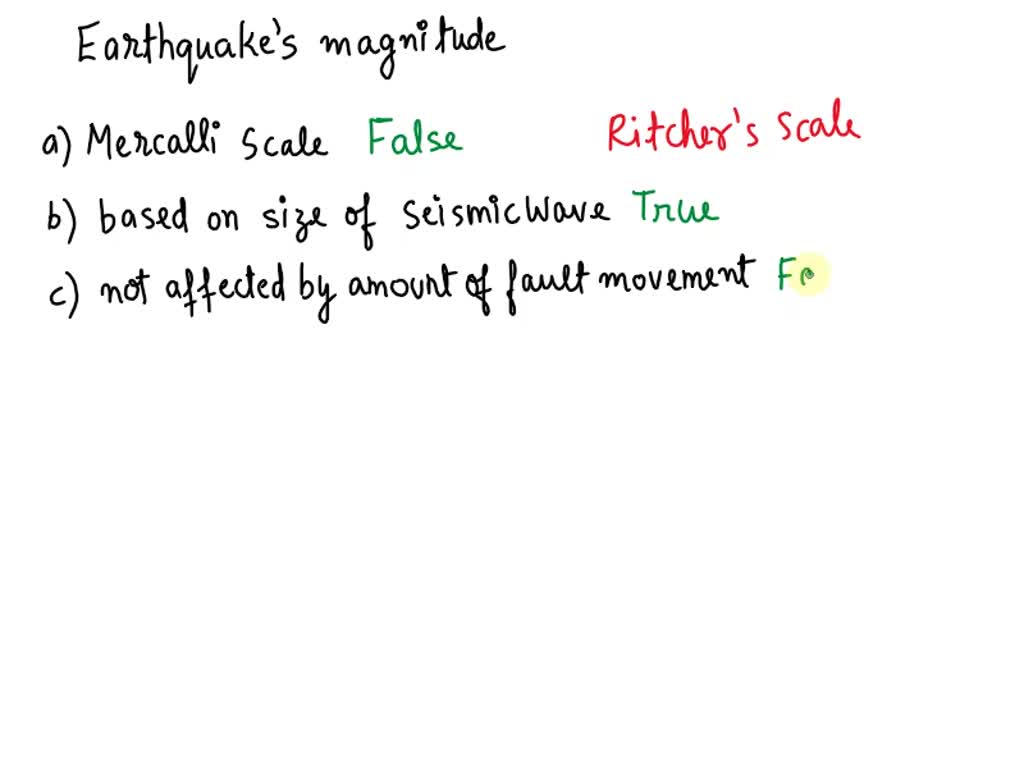 Earthquake's magnitude
a) Mercalli Scale False Ritcher's Scale
b) based on size of seismic wave True
c) not affected by amount of fault movement Fa